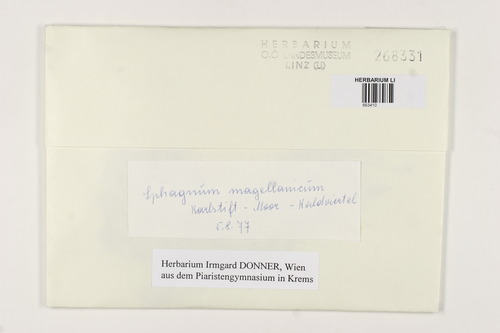 HERBARIUM
O.Ö. LANDESMUSEUM
LINZ (LI)
268331
HERBARIUM LI
Sphagnum magellanicum
Karlstift - Moor - Waldviertel
5.8.77
Herbarium Irmgard DONNER, Wien
aus dem Piaristengymnasium in Krems